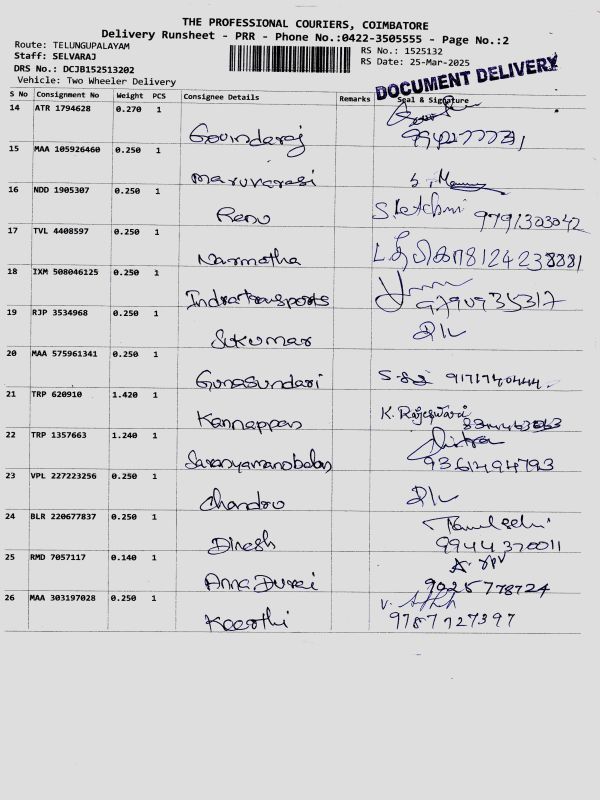 THE PROFESSIONAL COURIERS, COIMBATORE
Delivery Runsheet - PRR - Phone No.:0422-3505555 - Page No.:2
Route: TELUNGUPALAYAM
Staff: SELVARAJ
DRS No.: DCJB152513202
Vehicle: Two Wheeler Delivery
RS No.: 1525132
RS Date: 25-Mar-2025
DOCUMENT DELIVERY
S No Consignment No Weight PCS Consignee Details Remarks Seal & Signature
14 ATR 1794628 0.270 1
Govindaraj
15 MAA 105926460 0.250 1
Maruvarasi
16 NDD 1905307 0.250 1
Renu S. Letchmi 9791303042
17 TVL 4408597 0.250 1
Narmatha
18 IXM 508046125 0.250 1
Indratransports 9790935317
19 RJP 3534968 0.250 1
Sukumar
20 MAA 575961341 0.250 1
Gunasundari 9171740444
21 TRP 620910 1.420 1
Kannappan K. Rajeswari
22 TRP 1357663 1.240 1
Saranyamanobalan 9361494793
23 VPL 227223256 0.250 1
Chandru
24 BLR 220677837 0.250 1
Dinesh Tamilselvi
9944370011
25 RMD 7057117 0.140 1
Anna Durai 9025778724
26 MAA 303197028 0.250 1
Keerthi 9787727397